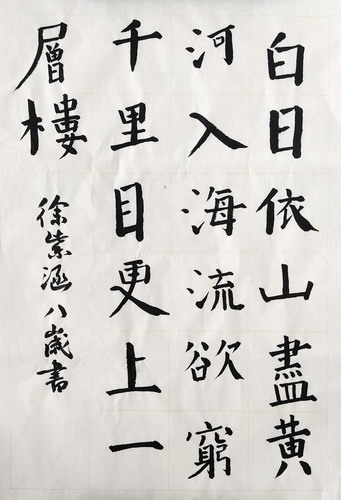 白日依山盡黄
河入海流欲窮
千里目更上一
層樓
徐紫涵八歳書